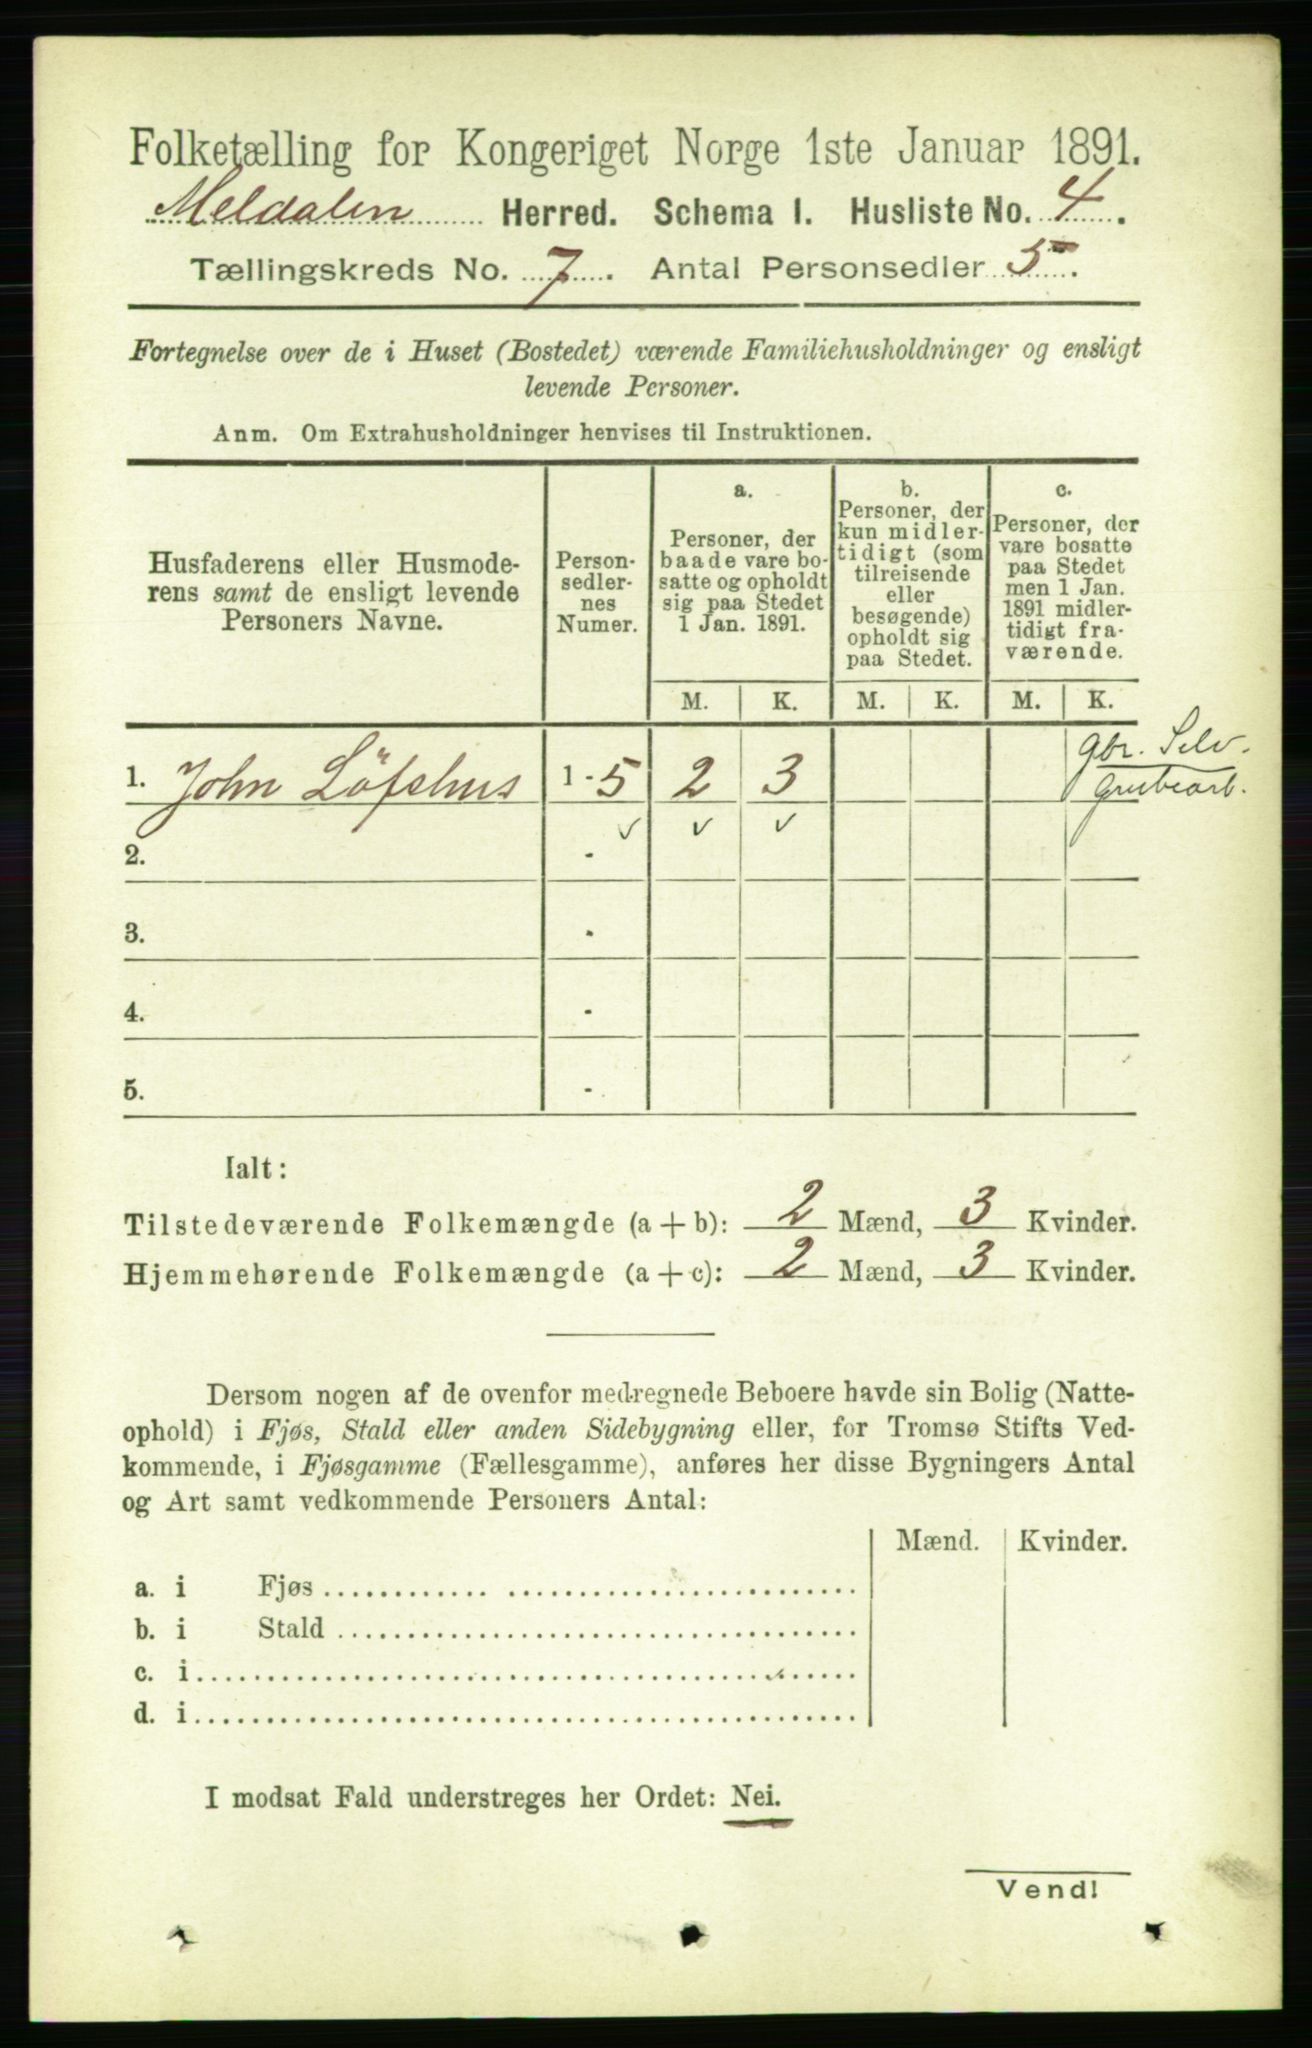 Folketælling for Kongeriget Norge 1ste Januar 1891.
Meldalen Herred. Schema 1. Husliste No. 4.
Tællingskreds No. 7. Antal Personsedler 5.
Fortegnelse over de i Huset (Bostedet) værende Familiehusholdninger og ensligt
levende Personer.
Anm. Om Extrahusholdninger henvises til Instruktionen.
Husfaderens eller Husmode-
rens samt de ensligt levende
Personers Navne.
Person-
sedler-
nes
Numer.
a.
Personer, der
baade vare bo-
satte og opholdt
sig paa Stedet
1 Jan. 1891.
b.
Personer, der
kun midler-
tidigt (som
tilreisende
eller
besøgende)
opholdt sig
paa Stedet.
c.
Personer, der
vare bosatte
paa Stedet
men 1 Jan.
1891 midler-
tidigt fra-
værende.
M. K. M. K. M. K.
1. John Löfshus 1 - 5 2 3 gbr. Selv.
Grubearb.
2. -
3. -
4. -
5. -
Ialt:
Tilstedeværende Folkemængde (a + b): 2 Mænd, 3 Kvinder.
Hjemmehørende Folkemængde (a + c): 2 Mænd, 3 Kvinder.
Dersom nogen af de ovenfor medregnede Beboere havde sin Bolig (Natte-
ophold) i Fjøs, Stald eller anden Sidebygning eller, for Tromsø Stifts Ved-
kommende, i Fjøsgamme (Fællesgamme), anføres her disse Bygningers Antal
og Art samt vedkommende Personers Antal:
Mænd. Kvinder.
a. i Fjøs
b. i Stald
c. i
d. i
I modsat Fald understreges her Ordet: Nei.
Vend!